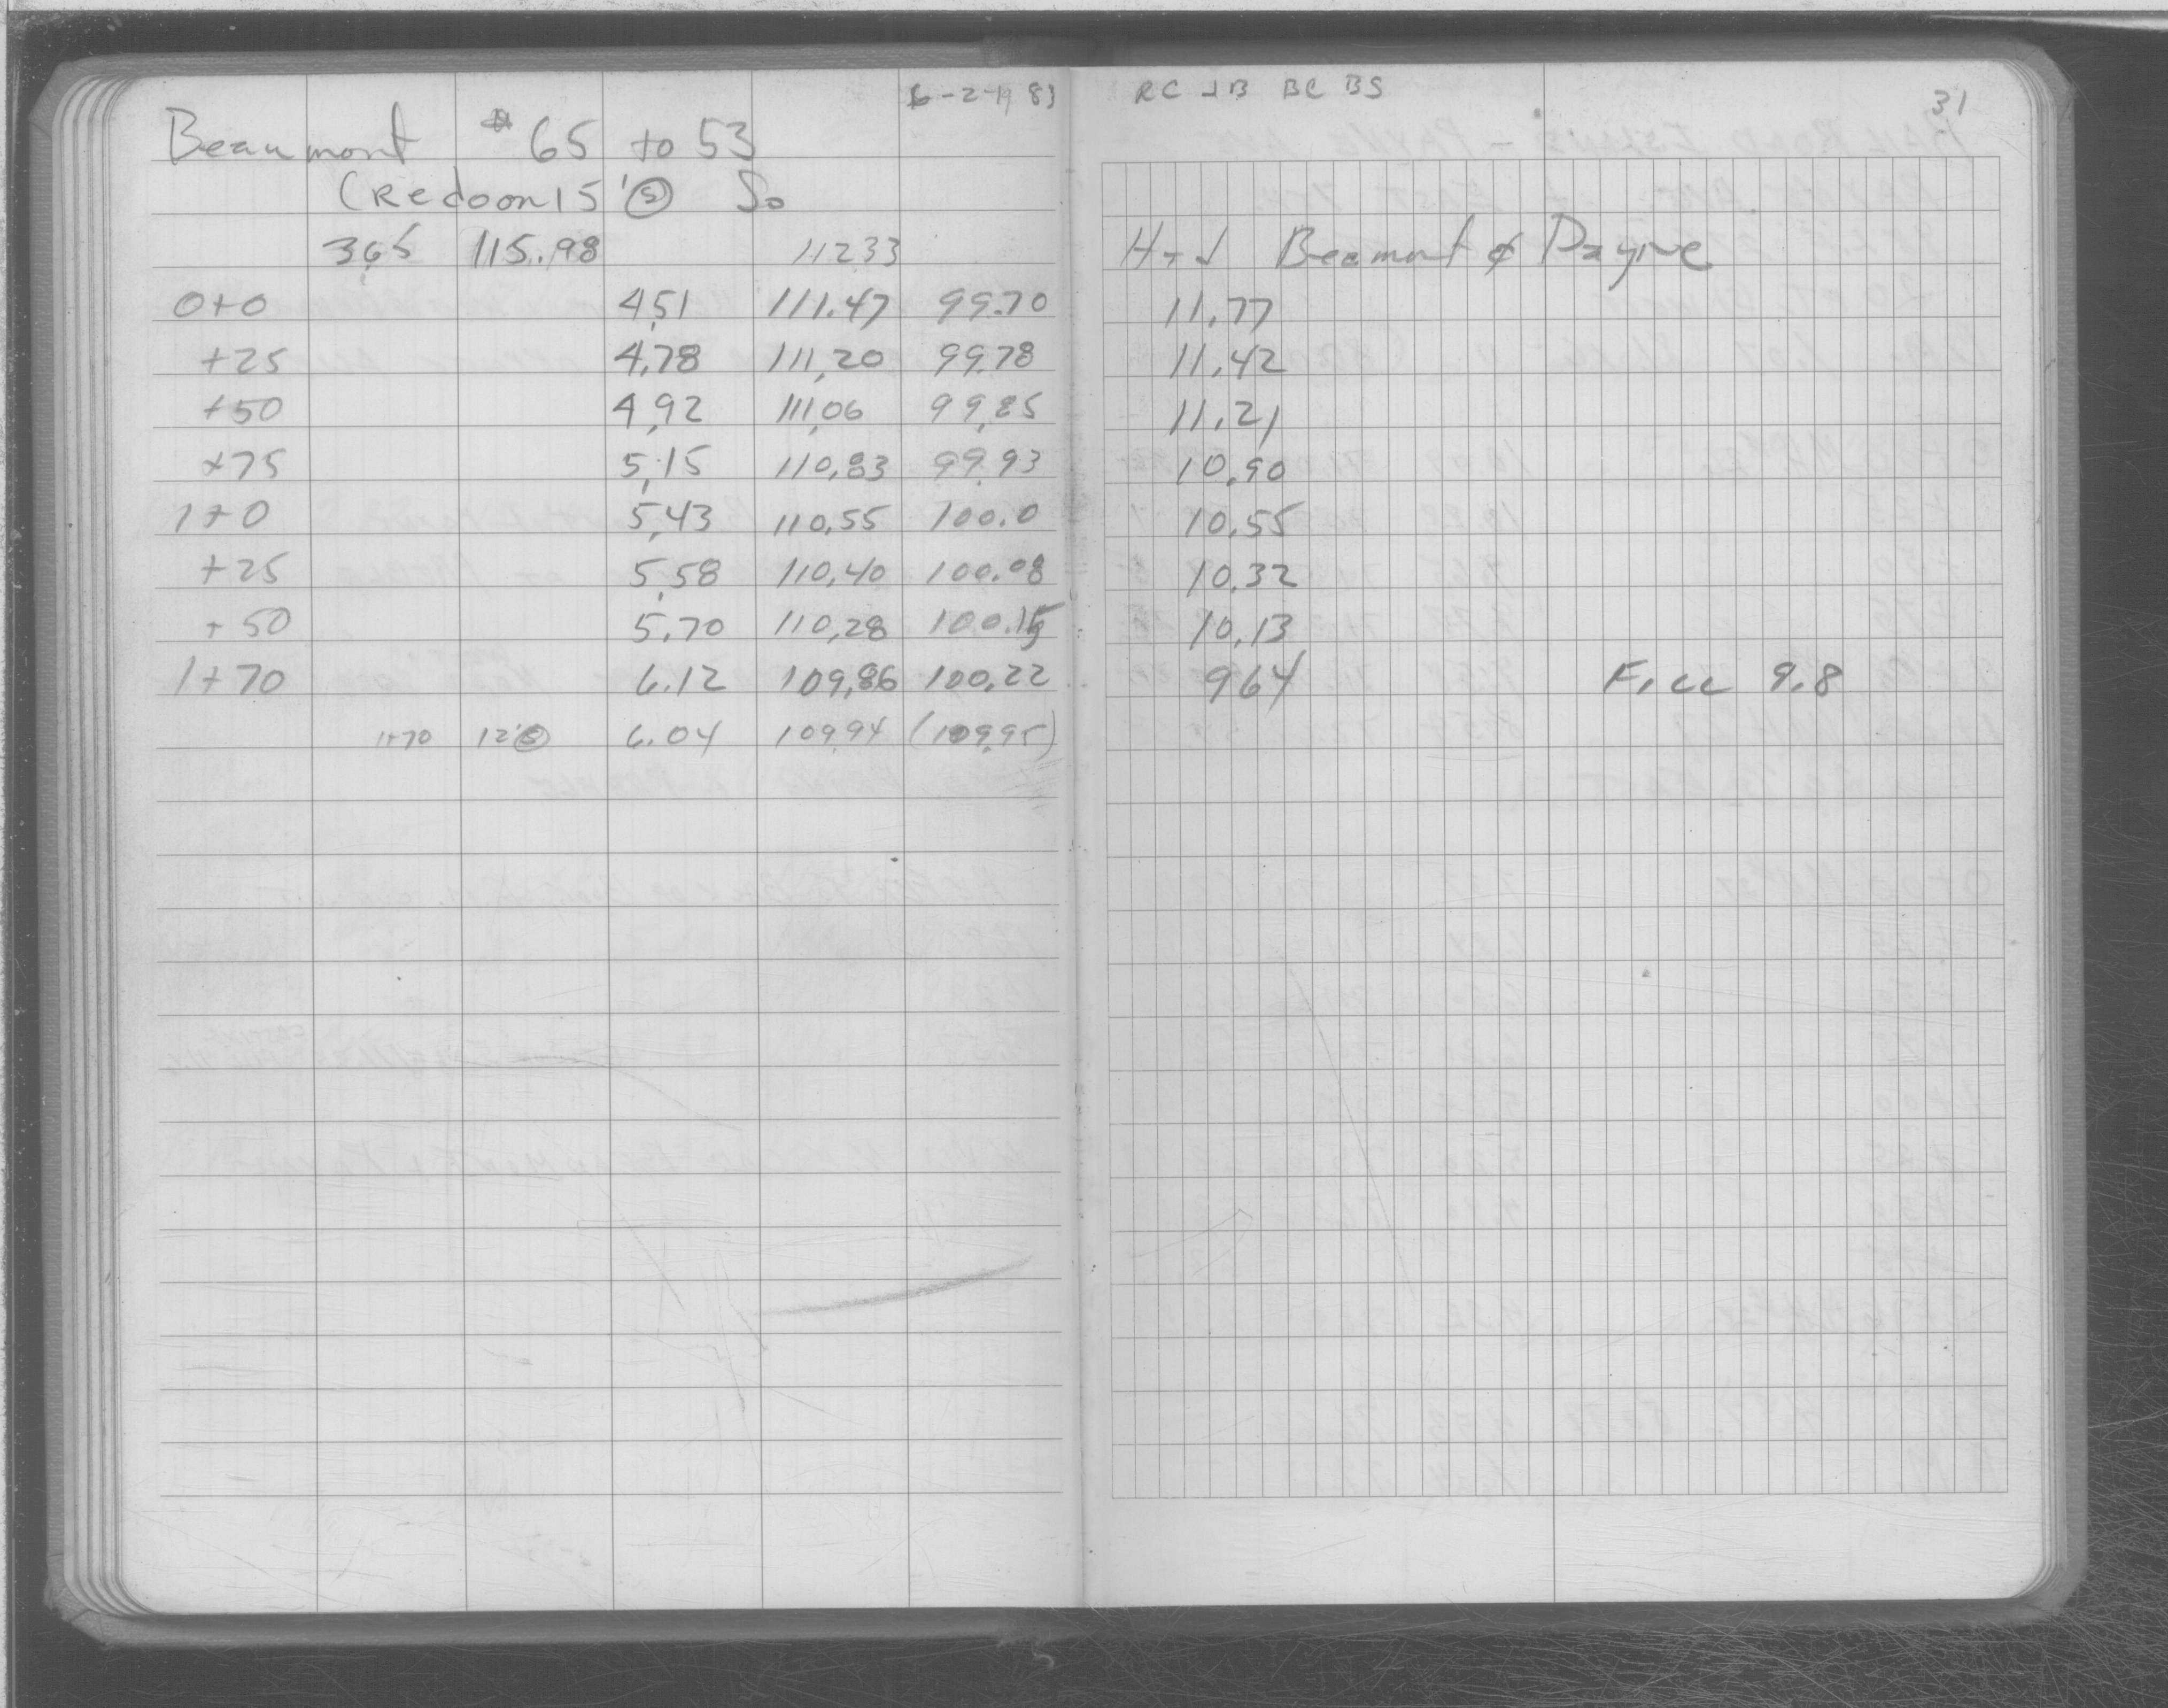 6-2-1983
Beaumont #65 to 53
(Redo on 15' S So
3.65 115.98 112.33
0+0 4.51 111.47 99.70
+25 4.78 111.20 99.78
+50 4.92 111.06 99.85
+75 5.15 110.83 99.93
1+0 5.43 110.55 100.0
+25 5.58 110.40 100.08
+50 5.70 110.28 100.15
1+70 6.12 109.86 100.22
1+70 12' S 6.04 109.94 (109.95)
RC JB BC BS 31
Hyd Beamont & Payne
11.77
11.42
11.21
10.90
10.55
10.32
10.13
9.64 Fill 9.8